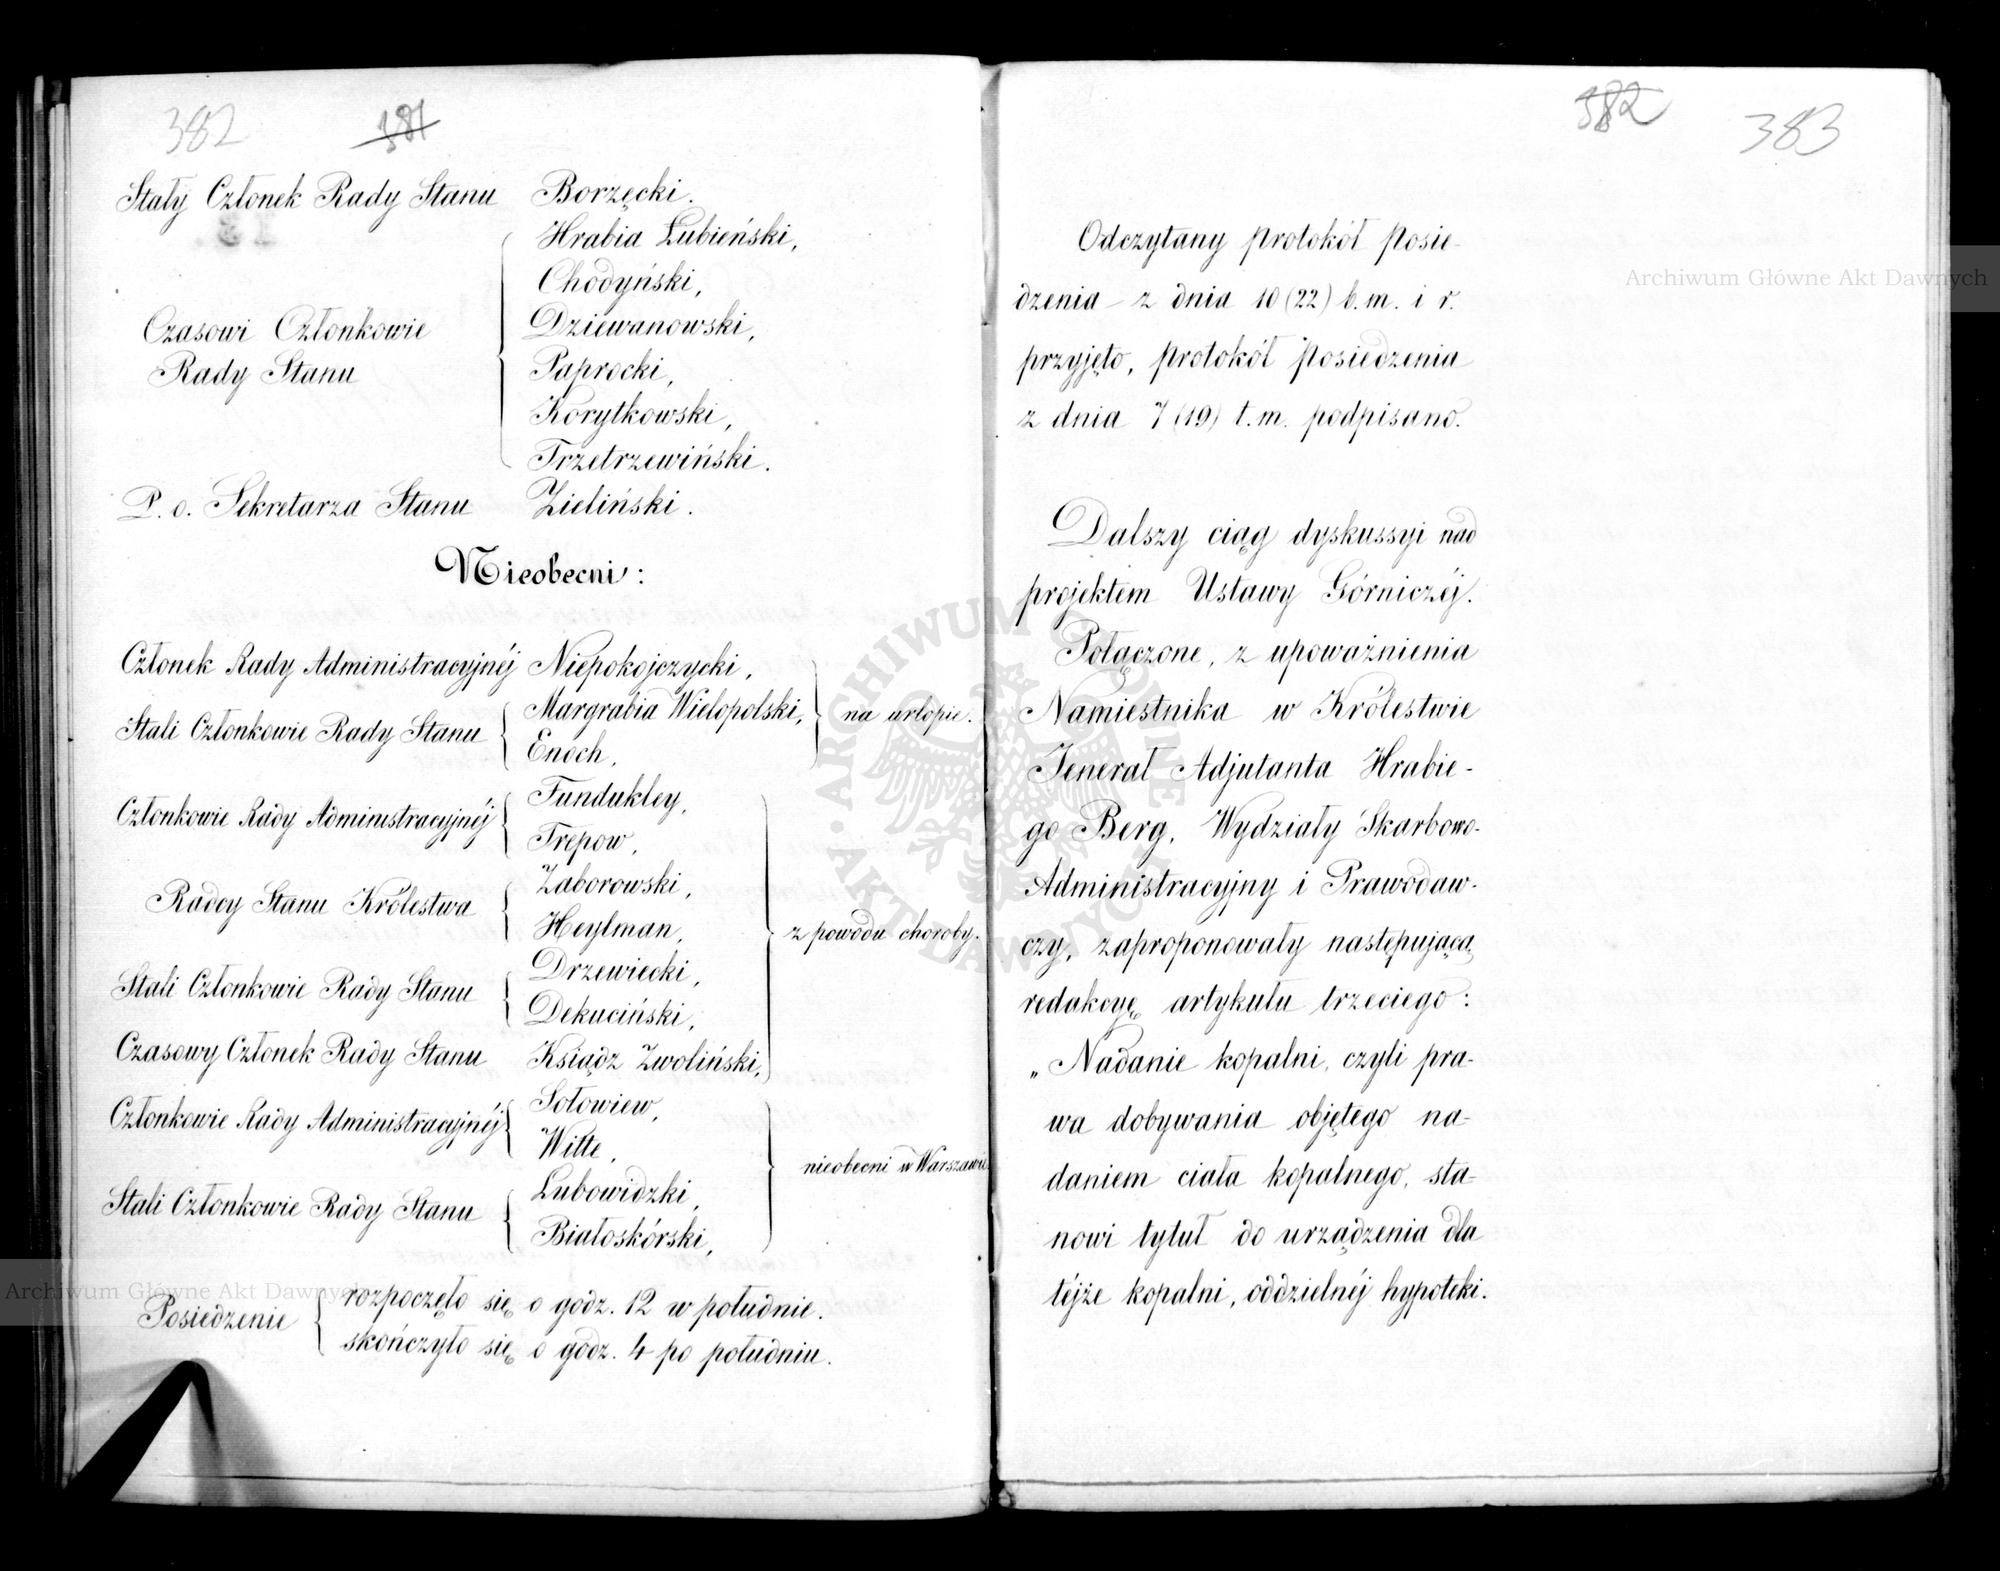 382 381
Stały Członek Rady Stanu Borzęcki.
Hrabia Łubieński,
Chodyński,
Czasowi Członkowie Dziewanowski,
Rady Stanu Paprocki,
Korytkowski,
Trzetrzewiński.
P. o. Sekretarza Stanu Zieliński.
Nieobecni:
Członek Rady Administracyjnéj Niepokojczycki,
Stali Członkowie Rady Stanu Margrabia Wielopolski, na urlopie.
Enoch,
Członkowie Rady Administracyjnéj Fundukley,
Trepow,
Radcy Stanu Królestwa Zaborowski,
Heylman, z powodu choroby.
Stali Członkowie Rady Stanu Drzewiecki,
Dekuciński,
Czasowy Członek Rady Stanu Ksiądz Zwoliński,
Członkowie Rady Administracyjnéj Sołowiew,
Witte, nieobecni w Warszawie.
Stali Członkowie Rady Stanu Łubowidzki,
Białoskórski,
Posiedzenie rozpoczęło się o godz. 12 w południe.
skończyło się o godz. 4 po południu.
382 383
Odczytany protokół posie-
dzenia z dnia 10 (22) b. m. i r.
przyjęto, protokół posiedzenia
z dnia 7 (19) t. m. podpisano.
Dalszy ciąg dyskussyi nad
projektem Ustawy Górniczéj.
Połączone, z upoważnienia
Namiestnika w Królestwie
Jenerał Adjutanta Hrabie-
go Berg, Wydziały Skarbowo-
Administracyjny i Prawodaw-
czy, zaproponowały następującą
redakcyę artykułu trzeciego:
„Nadanie kopalni, czyli pra-
wa dobywania objętego na-
daniem ciała kopalnego, sta-
nowi tytuł do urządzenia dla
téjże kopalni, oddzielnéj hypoteki.
Archiwum Główne Akt Dawnych
Archiwum Główne Akt Dawnych
ARCHIWUM GŁÓWNE AKT DAWNYCH